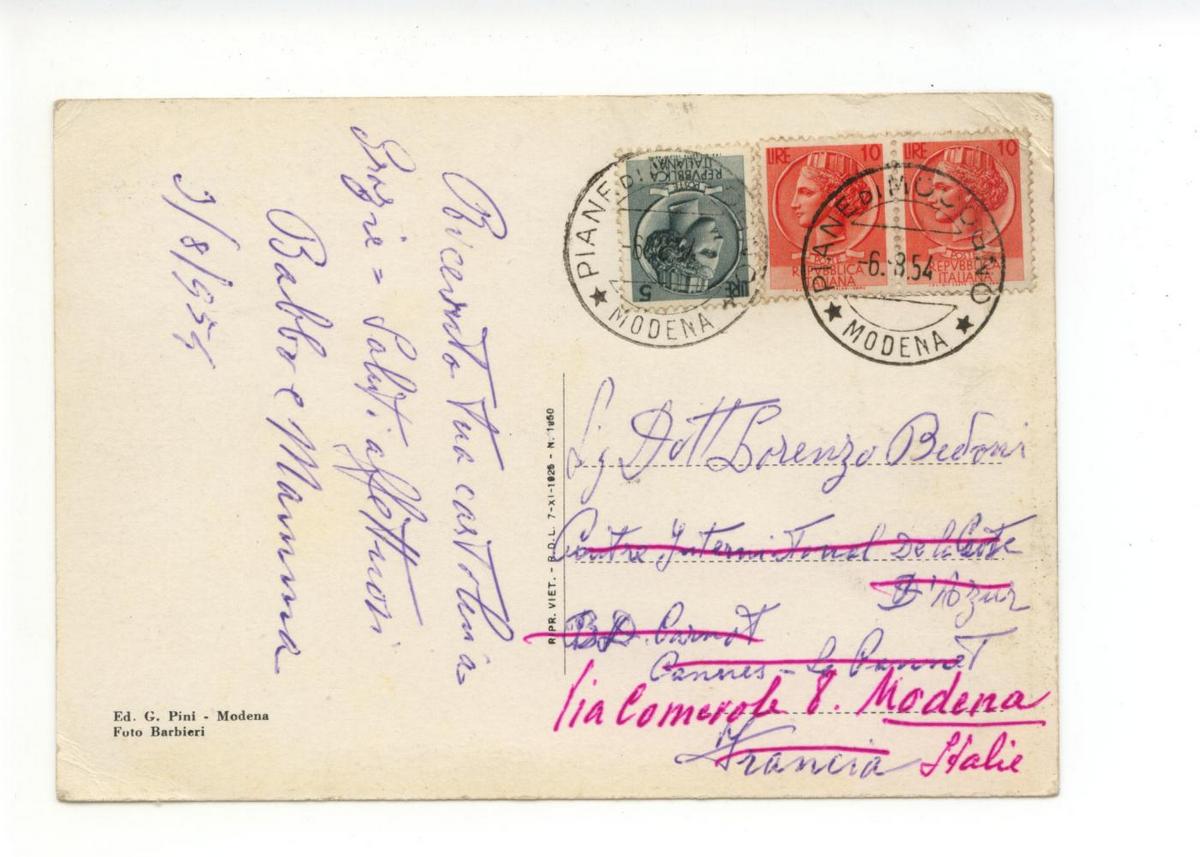 Ricevuto tua cartolina
Grazie = Saluti affettuosi
Babbo e Mamma
3/8/954
Ed. G. Pini - Modena
Foto Barbieri
RIPR. VIET. - R.D.L. 7-XI-1925 - N. 1950
REPVBBLICA
ITALIANA
POSTE
LIRE 5
LIRE 10
POSTE
REPVBBLICA
ITALIANA
LIRE 10
POSTE
REPVBBLICA
ITALIANA
PIANE DI
MODENA
PIANE DI MOCOGNO
-6.-8.54
MODENA
Sg Dott Lorenzo Bedoni
Centre International De la Côte
D'Azur
BD. Carnot
Cannes - Le Cannet
Via Modena
Francia Italie